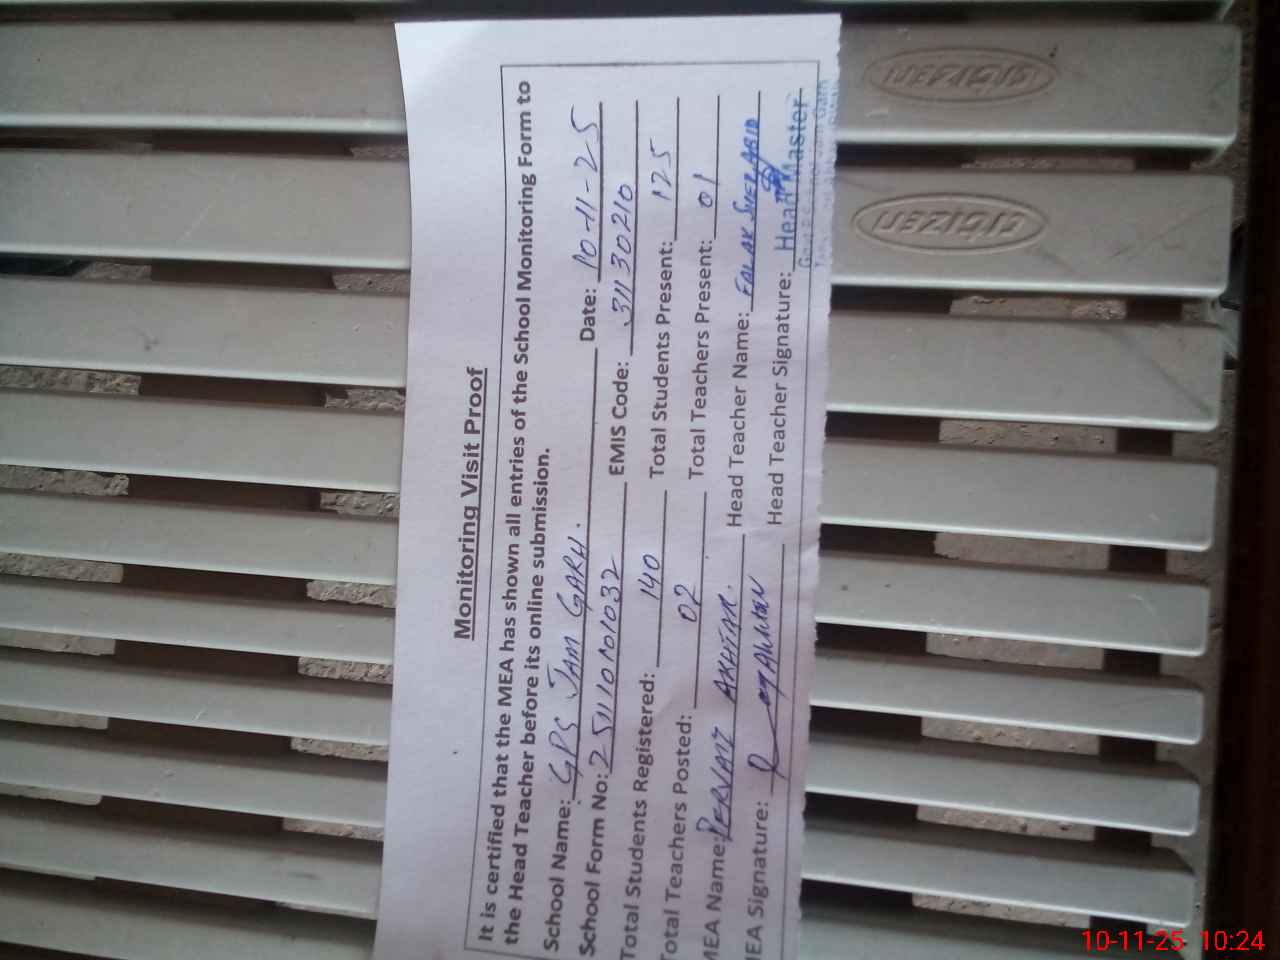 Monitoring Visit Proof
It is certified that the MEA has shown all entries of the School Monitoring Form to
the Head Teacher before its online submission.
School Name: GPS JAM GARH. Date: 10-11-25
School Form No: 251110101032 EMIS Code: 31130210
Total Students Registered: 140 Total Students Present: 125
Total Teachers Posted: 02 Total Teachers Present: 01
MEA Name: PERVAIZ AKHTAR. Head Teacher Name: FALAK SHER ABID
MEA Signature: Head Teacher Signature: Head Master
CITIZEN
CITIZEN
10-11-25 10:24